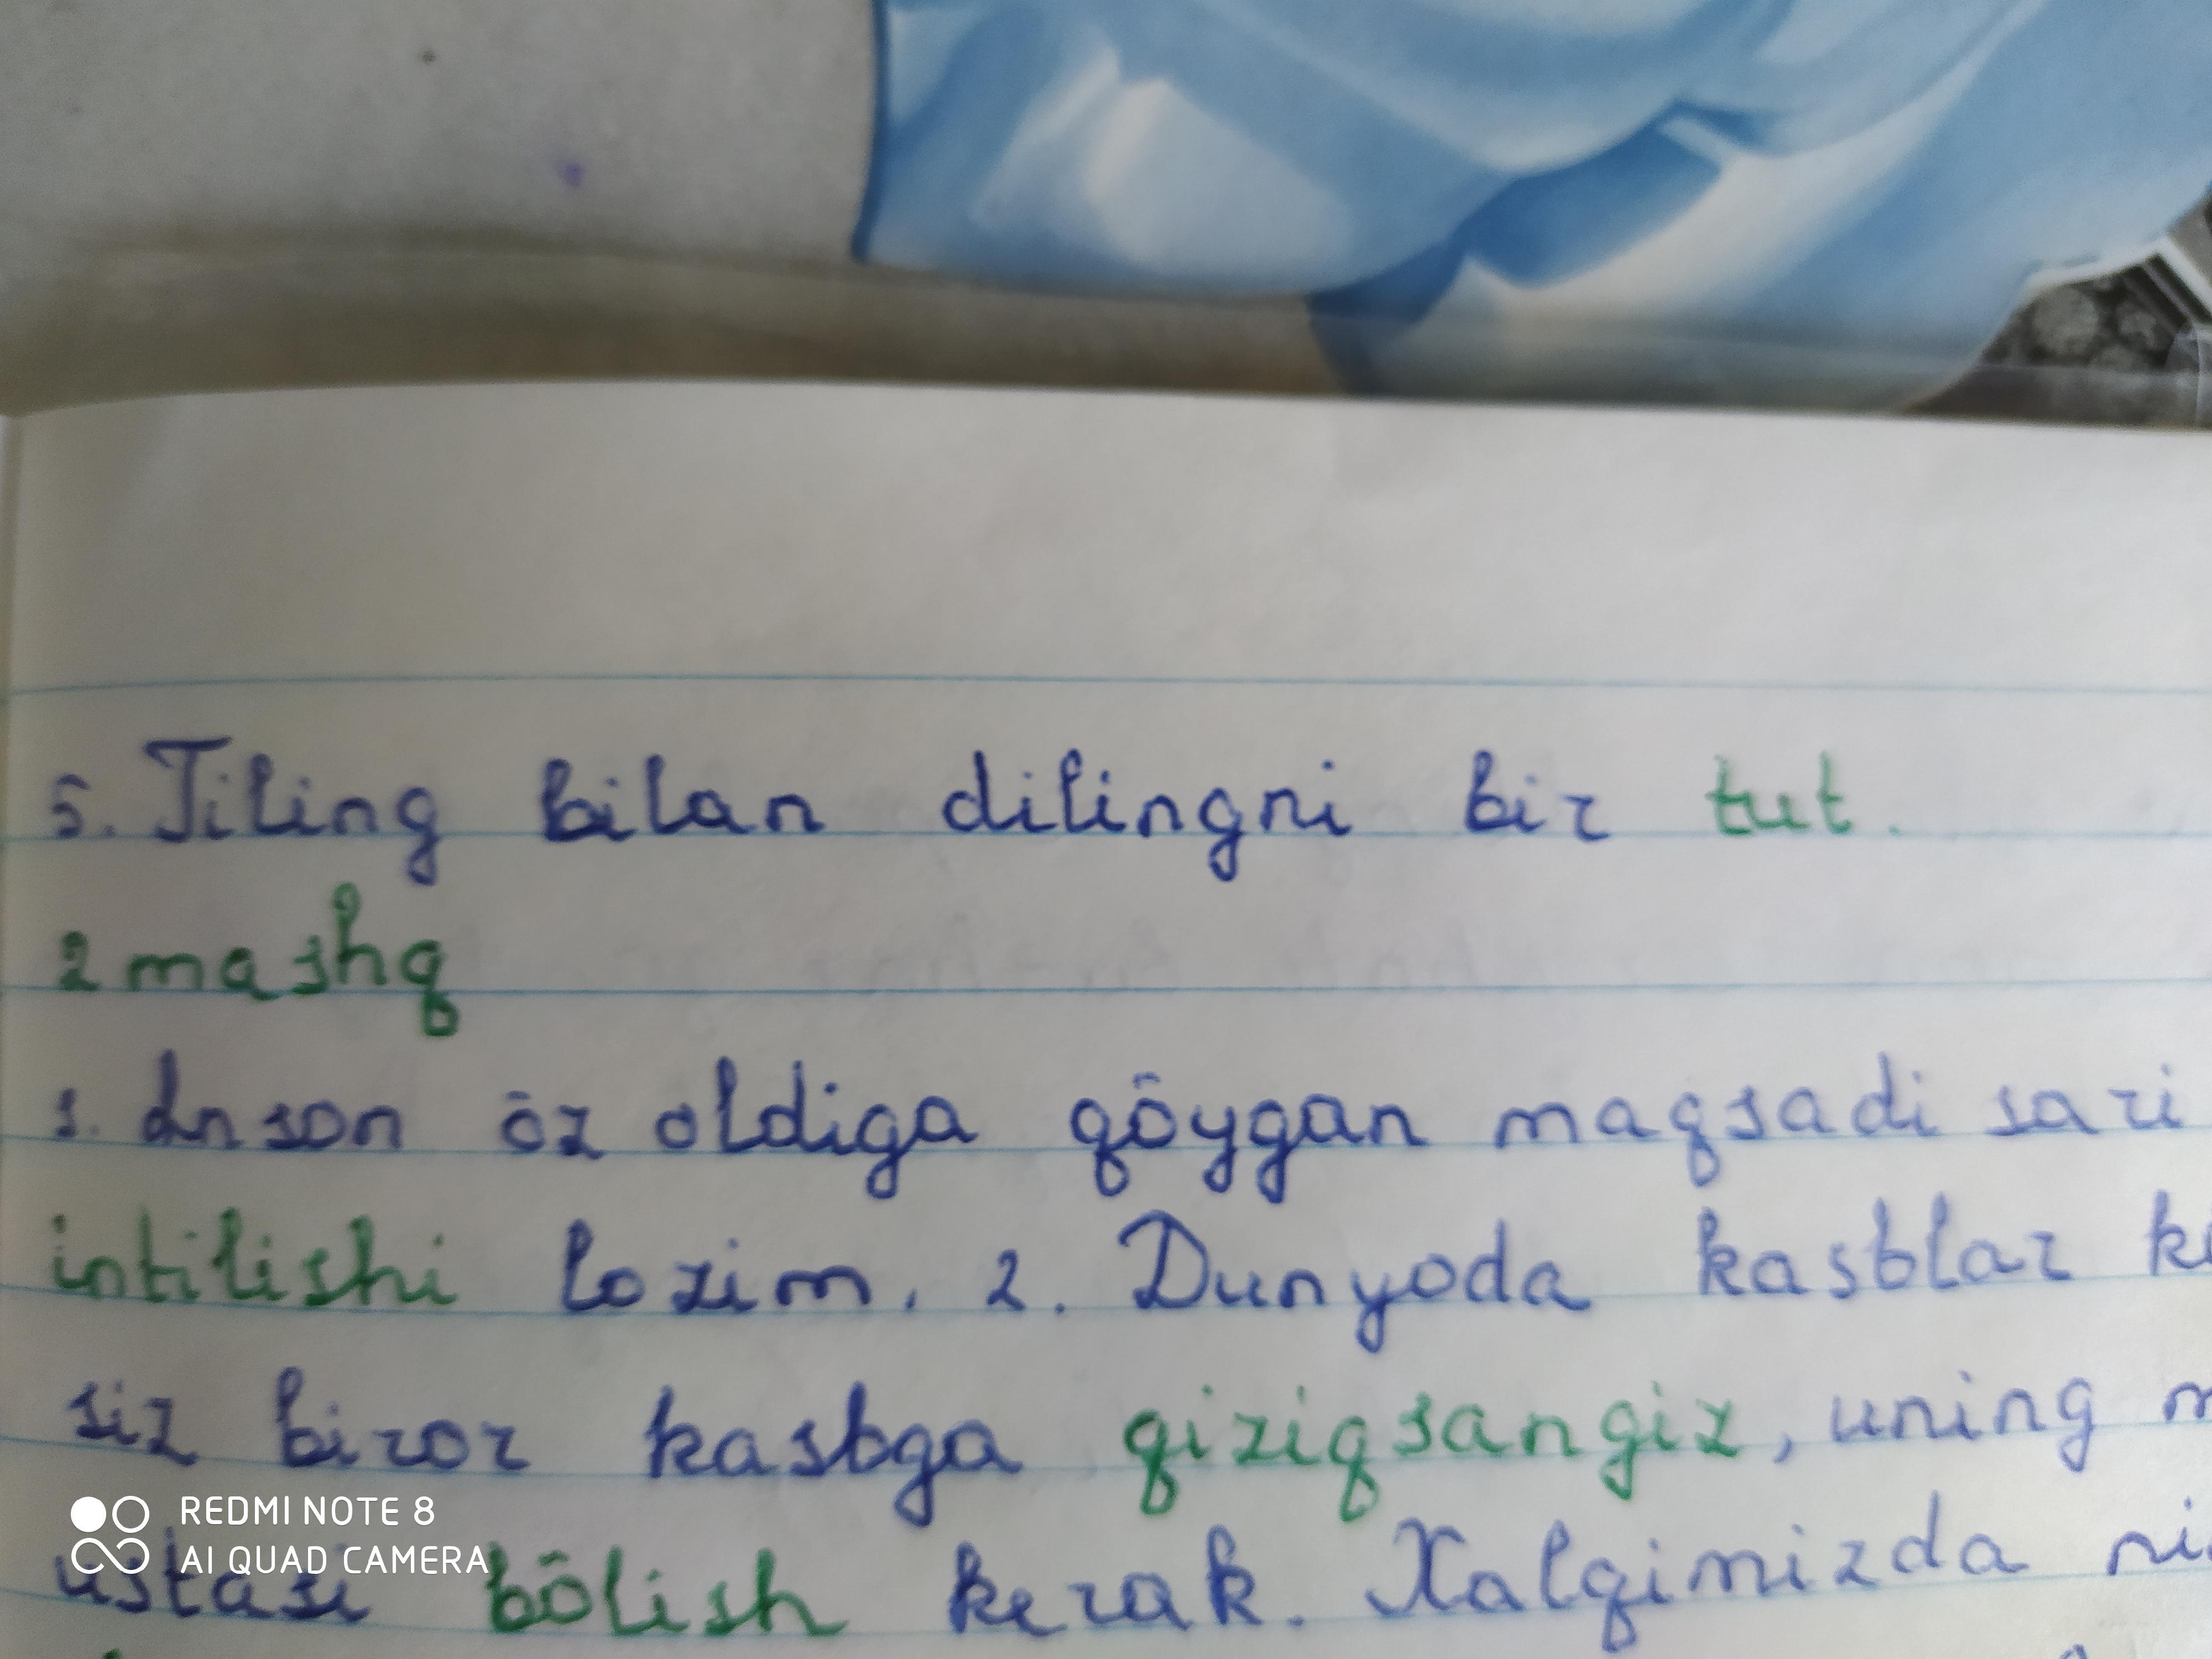 5. Tiling bilan dilingni bir tut.
2 mashq
1. Inson õz oldiga qõygan maqsadi sari
intilishi lozim. 2. Dunyoda kasblar
siz biror kasbga qiziqsangiz, uning
ustasi bõlish kerak. Xalqimizda
REDMI NOTE 8
AI QUAD CAMERA